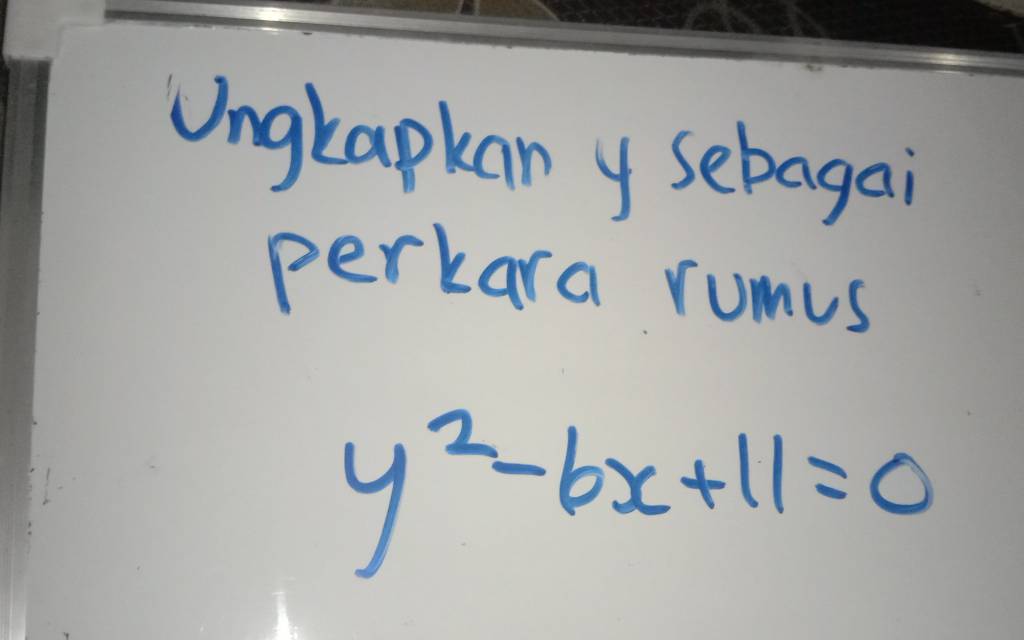 Ungkapkan y sebagai
perkara rumus
y² - bx + 11 = 0